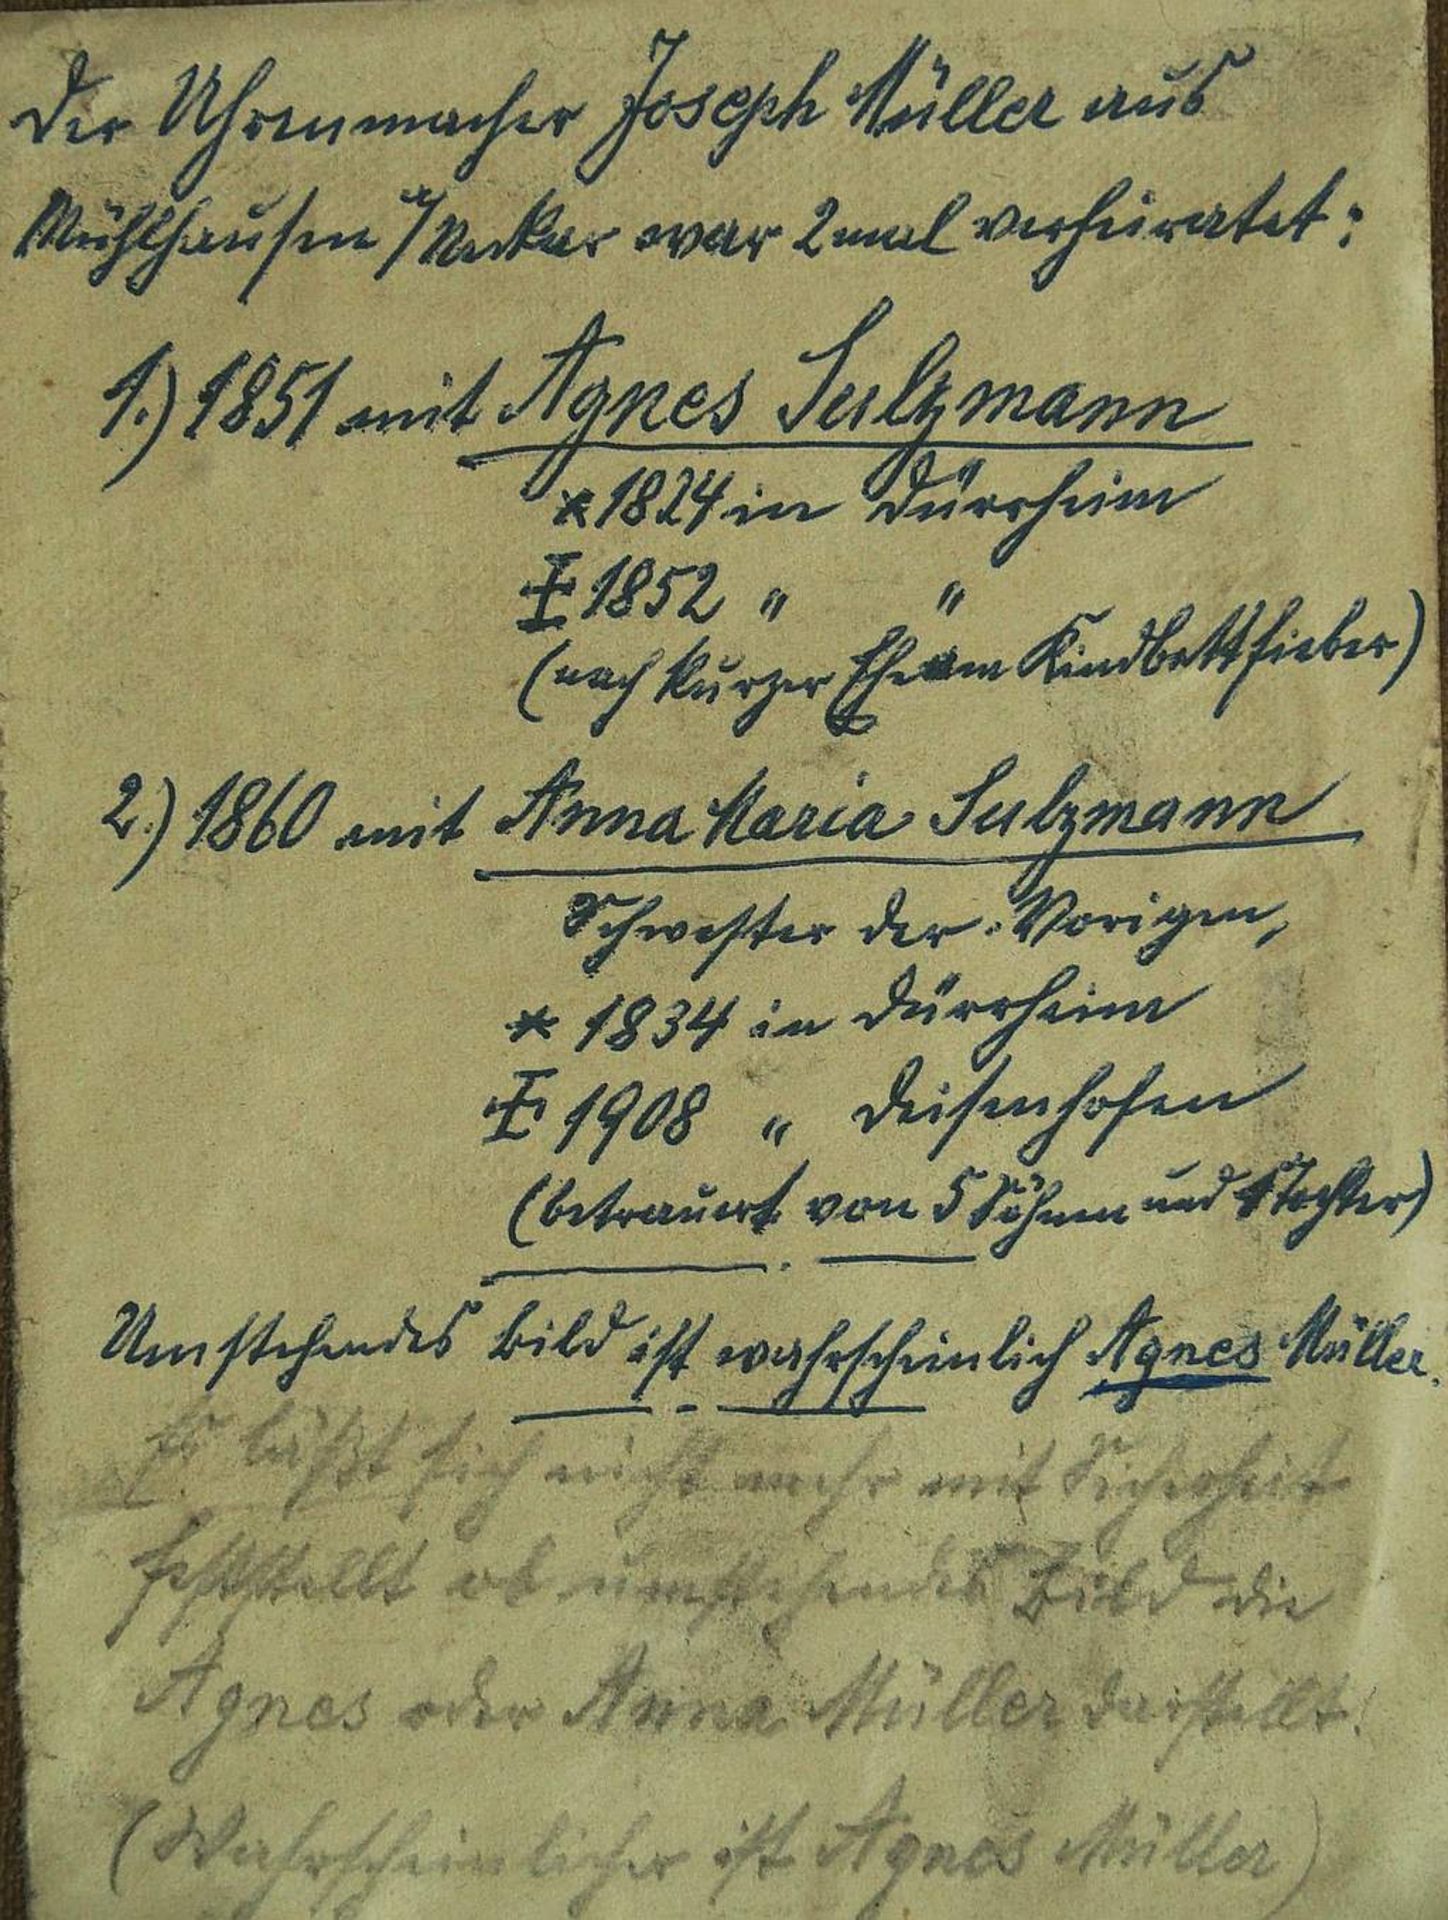 Der Uhrenmacher Joseph Müller aus
Mühlhausen a/Neckar war 2mal verheiratet:
1.) 1851 mit Agnes Sulzmann
* 1824 in Dürrheim
‡ 1852 " "
(nach kurzer Ehe am Kindbettfieber)
2.) 1860 mit Anna Maria Sulzmann
Schwester der Vorigen,
* 1834 in Dürrheim
‡ 1908 " Deisenhofen
(betrauert von 5 Söhnen und 1 Tochter)
Umstehendes Bild ist wahrscheinlich Agnes Müller.
Es läßt sich nicht mehr mit Sicherheit
feststellt ob umstehendes Bild die
Agnes oder Anna Müller darstellt!
(Wahrscheinlicher ist Agnes Müller)